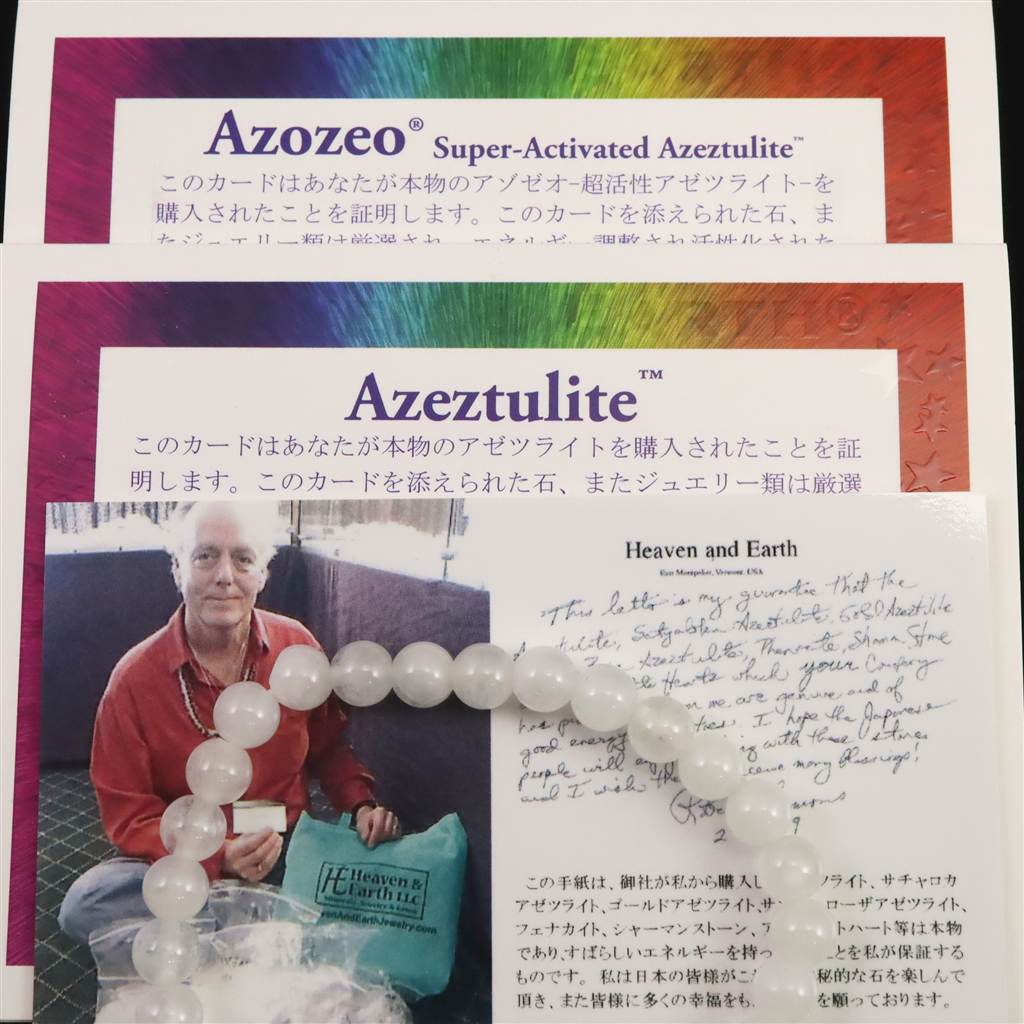 Azozeo® Super-Activated Azeztulite™
このカードはあなたが本物のアゾゼオ-超活性アゼツライト-を
購入されたことを証明します。このカードを添えられた石、ま
たジュエリー類は厳選され、エネルギー調整され活性化された
Azeztulite™
このカードはあなたが本物のアゼツライトを購入されたことを証
明します。このカードを添えられた石、またジュエリー類は厳選
Heaven and Earth
East Montpelier, Vermont, USA
This letter is my guarantee that the
Satyaloka Azeztulite, Gold Azeztulite
Azeztulite, Phenacite, Shaman Stone
Hearts which your Company
me are genuine and of
good energy I hope the Japanese
people will with these stones
and I wish many blessings!
HE Heaven &
Earth LLC
venAndEarthJewelry.com
この手紙は、御社が私から購入し ライト、サチャロカ
アゼツライト、ゴールドアゼツライト、サ ローザアゼツライト、
フェナカイト、シャーマンストーン、 トハート等は本物
であり、すばらしいエネルギーを持っ とを私が保証する
ものです。 私は日本の皆様がこ 秘的な石を楽しんで
頂き、また皆様に多くの幸福をも を願っております。